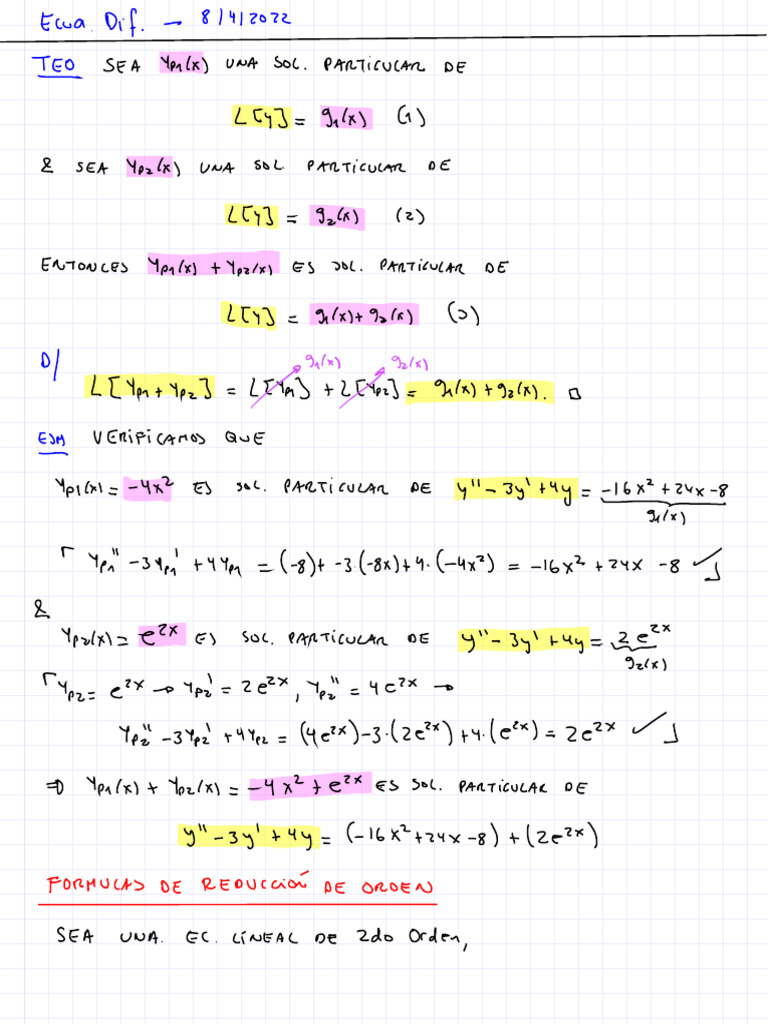 Ecua. Dif. → 8/4/2022
TEO SEA yp1(x) UNA SOL. PARTICULAR DE
L[y] = g1(x) (1)
& SEA yp2(x) UNA SOL PARTICULAR DE
L[y] = g2(x) (2)
ENTONCES yp1(x) + yp2(x) ES SOL. PARTICULAR DE
L[y] = g1(x) + g2(x) (3)
D/ g1(x) g2(x)
L[yp1 + yp2] = L[yp1] + L[yp2] = g1(x) + g2(x). □
EJM VERIFICAMOS QUE
yp1(x) = -4x² ES SOL. PARTICULAR DE y'' - 3y' + 4y = -16x² + 24x - 8
g1(x)
Γ yp1'' - 3yp1' + 4yp1 = (-8) + -3·(-8x) + 4·(-4x²) = -16x² + 24x - 8 ✓ ┘
&
yp2(x) = e^2x ES SOL. PARTICULAR DE y'' - 3y' + 4y = 2e^2x
g2(x)
Γ yp2 = e^2x → yp2' = 2e^2x, yp2'' = 4e^2x →
yp2'' - 3yp2' + 4yp2 = (4e^2x) - 3·(2e^2x) + 4·(e^2x) = 2e^2x ✓ ┘
⇒ yp1(x) + yp2(x) = -4x² + e^2x ES SOL. PARTICULAR DE
y'' - 3y' + 4y = (-16x² + 24x - 8) + (2e^2x)
FORMULAS DE REDUCCIÓN DE ORDEN
SEA UNA. EC. LÍNEAL DE 2do Orden,